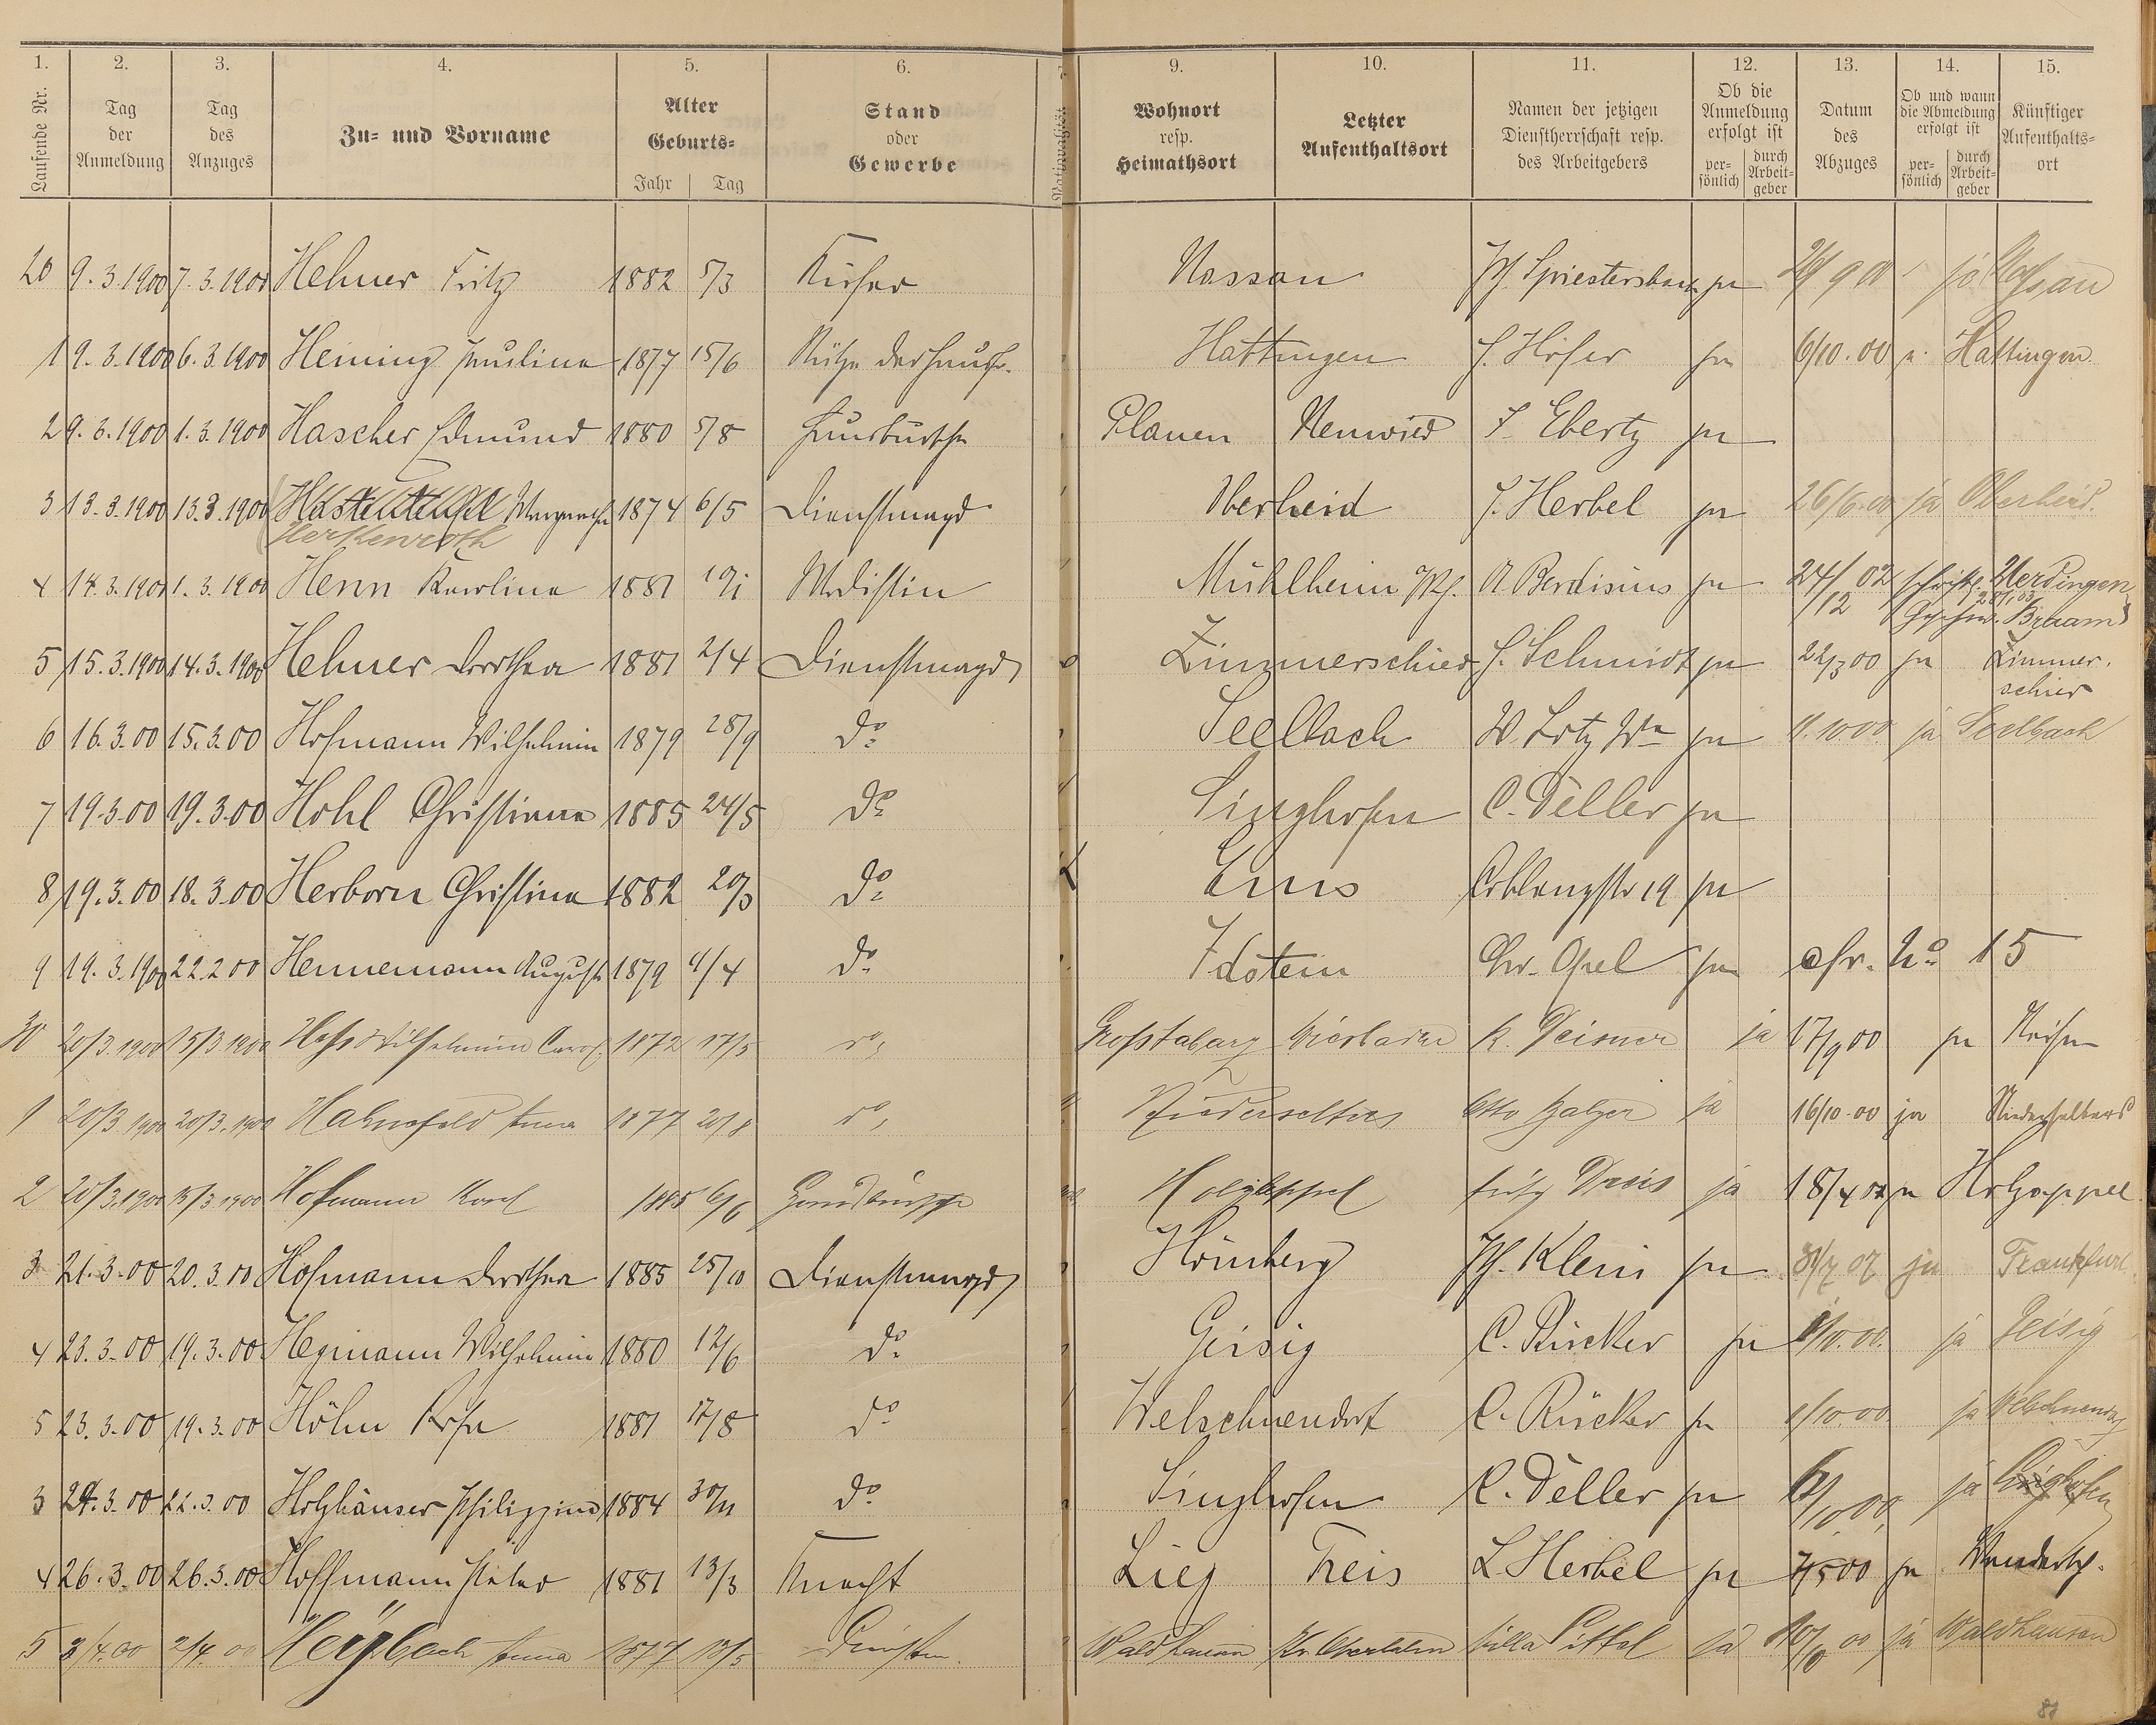 1. 2. 3. 4. 5. 6. 7. 9. 10. 11. 12. 13. 14. 15.
Laufende Nr. Tag der Anmeldung Tag des Anzuges Zu- und Vorname Alter Geburts- Jahr Tag Stand oder Gewerbe Nationalität Wohnort resp. Heimathsort Letzter Aufenthaltsort Namen der jetzigen Dienstherrschaft resp. des Arbeitgebers Ob die Anmeldung erfolgt ist per- sönlich durch Arbeit- geber Datum des Abzuges Ob und wann die Abmeldung erfolgt ist per- sönlich durch Arbeit- geber Künftiger Aufenthalts- ort
20 9.3.1900 7.3.1900 Hehner Fritz 1882 5/3 Küfer Nassau Ph. Spriestersbach ja 9 00 ja Nassau
1 9.3.1900 6.3.1900 Heining Pauline 1877 15/6 Stütze der Hausfr. Hattingen J. Höfer ja 6/10.00 Hattingen
2 9.3.1900 1.3.1900 Hascher Edmund 1880 5/8 Hausbursche Plauen Neuwied F. Ebertz ja
3 13.3.1900 13.3.1900 Margarethe 1874 6/5 Dienstmagd Oberheid J. Herbel ja 26/6.00 ja Oberheid.
Herkenroth
4 14.3.1900 1.3.1900 Henn Karoline 1881 10/1 Modistin Mühlheim a/Rh. A. Bardisius ja 24/12 02 schriftl. Uerdingen
5 15.3.1900 14.3.1900 Hehner Dorothea 1881 2/4 Dienstmagd Zimmerschied J. Schmidt ja 22/3 00 ja Zimmer-
schied
6 16.3.00 15.3.00 Hofmann Wilhelmine 1879 28/9 do Seelbach W. Lotz Ww ja 1.10.00 ja Seelbach
7 19.3.00 19.3.00 Hohl Christiane 1885 24/5 do Singhofen C. Deller ja
8 19.3.00 18.3.00 Herborn Christina 1882 20/3 do Ems Coblenzstr 19 ja
9 19.3.1900 22.2.00 Hennemann Auguste 1879 4/4 do Idstein Chr. Opel ja cfr. No 15
30 20/3.1900 15/3 1900 Hess Wilhelmine Carol. 1872 17/5 do, Grosstabarz Wiesbaden K. Deisner ja 17/9 00 ja
1 20/3 1900 20/3.1900 Hahnefeld Anna 1877 20/8 do, Niederselters Otto Balzer ja 16/10.00 ja Niederselters
2 20/3.1900 15/3 1900 Hofmann Karl 1885 6/6 Hausbursche Holzappel Fritz Dreis ja 18/4 02 ja Holzappel
3 21.3.00 20.3.00 Hofmann Dorothea 1885 25/10 Dienstmagd Hömberg Ph. Klein ja ja Frankfurt
4 23.3.00 19.3.00 Hegmann Wilhelmine 1880 12/6 do Geisig C. Rücker ja 1/10.00. ja Geisig
5 23.3.00 19.3.00 Höhn Rosa 1881 17/8 do Welschneudorf C. Rücker ja 1/10.00 ja Welschneudorf
3 24.3.00 22.3.00 Holzhäuser Philippine 1884 30/11 do Singhofen C. Deller ja ja Singhofen
4 26.3.00 26.3.00 Hoffmann Peter 1881 13/3 Knecht Lieg Treis L. Herbel ja 7/5 00 ja Wandersch.
5 3/4.00 2/4.00 Heybach Anna 1877 13/5 Waldhausen Villa ja 10/10 00 ja Waldhausen
81